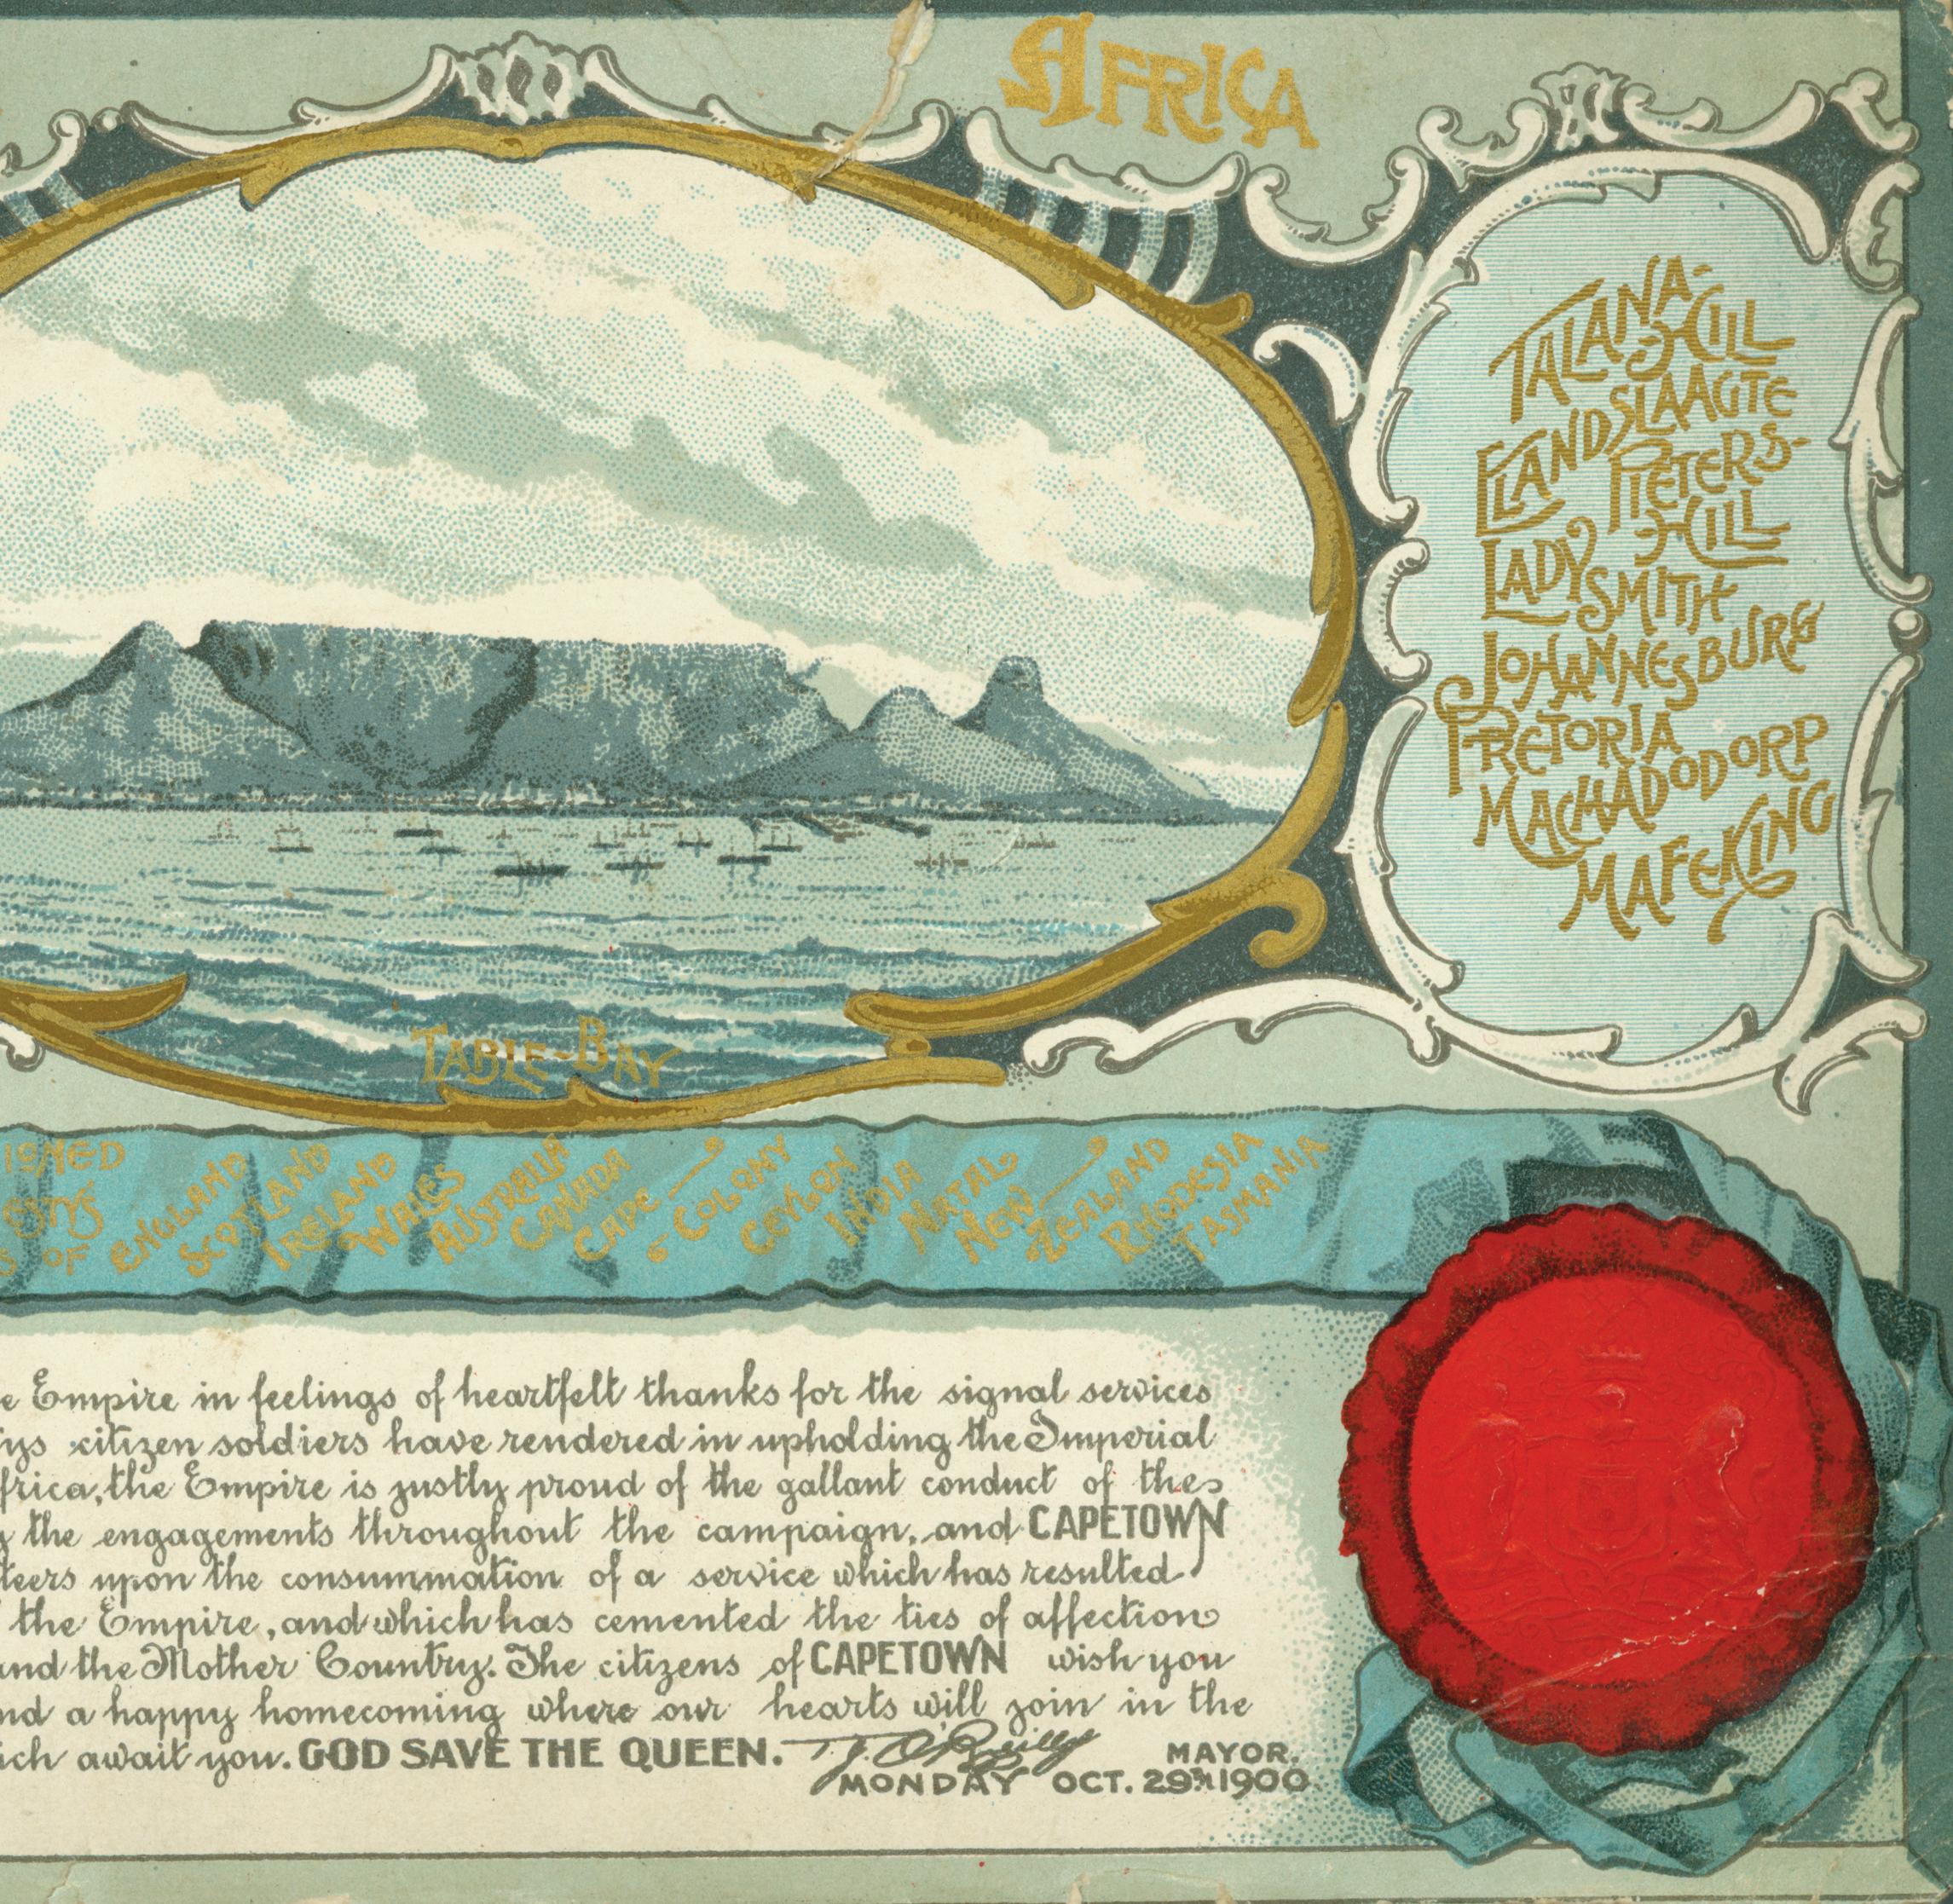 AFRICA
TALANA-
HILL
ELANDSLAAGTE
PIETERS-
HILL
LADYSMITH
JOHANNESBURG
PRETORIA
MACHADODORP
MAFEKING
TABLE-BAY
IONED
ESTYS
S OF
ENGLAND
SCOTLAND
IRELAND
WALES
AUSTRALIA
CANADA
CAPE
COLONY
CEYLON
INDIA
NATAL
NEW
ZEALAND
RHODESIA
TASMANIA
e Empire in feelings of heartfelt thanks for the signal services
tys citizen soldiers have rendered in upholding the Imperial
frica, the Empire is justly proud of the gallant conduct of the
g the engagements throughout the campaign, and CAPETOWN
teers upon the consummation of a service which has resulted
the Empire, and which has cemented the ties of affection
and the Mother Country. The citizens of CAPETOWN wish you
nd a happy homecoming where our hearts will join in the
ich await you. GOD SAVE THE QUEEN. T. J. O'Reilly MAYOR.
MONDAY OCT. 29th 1900.